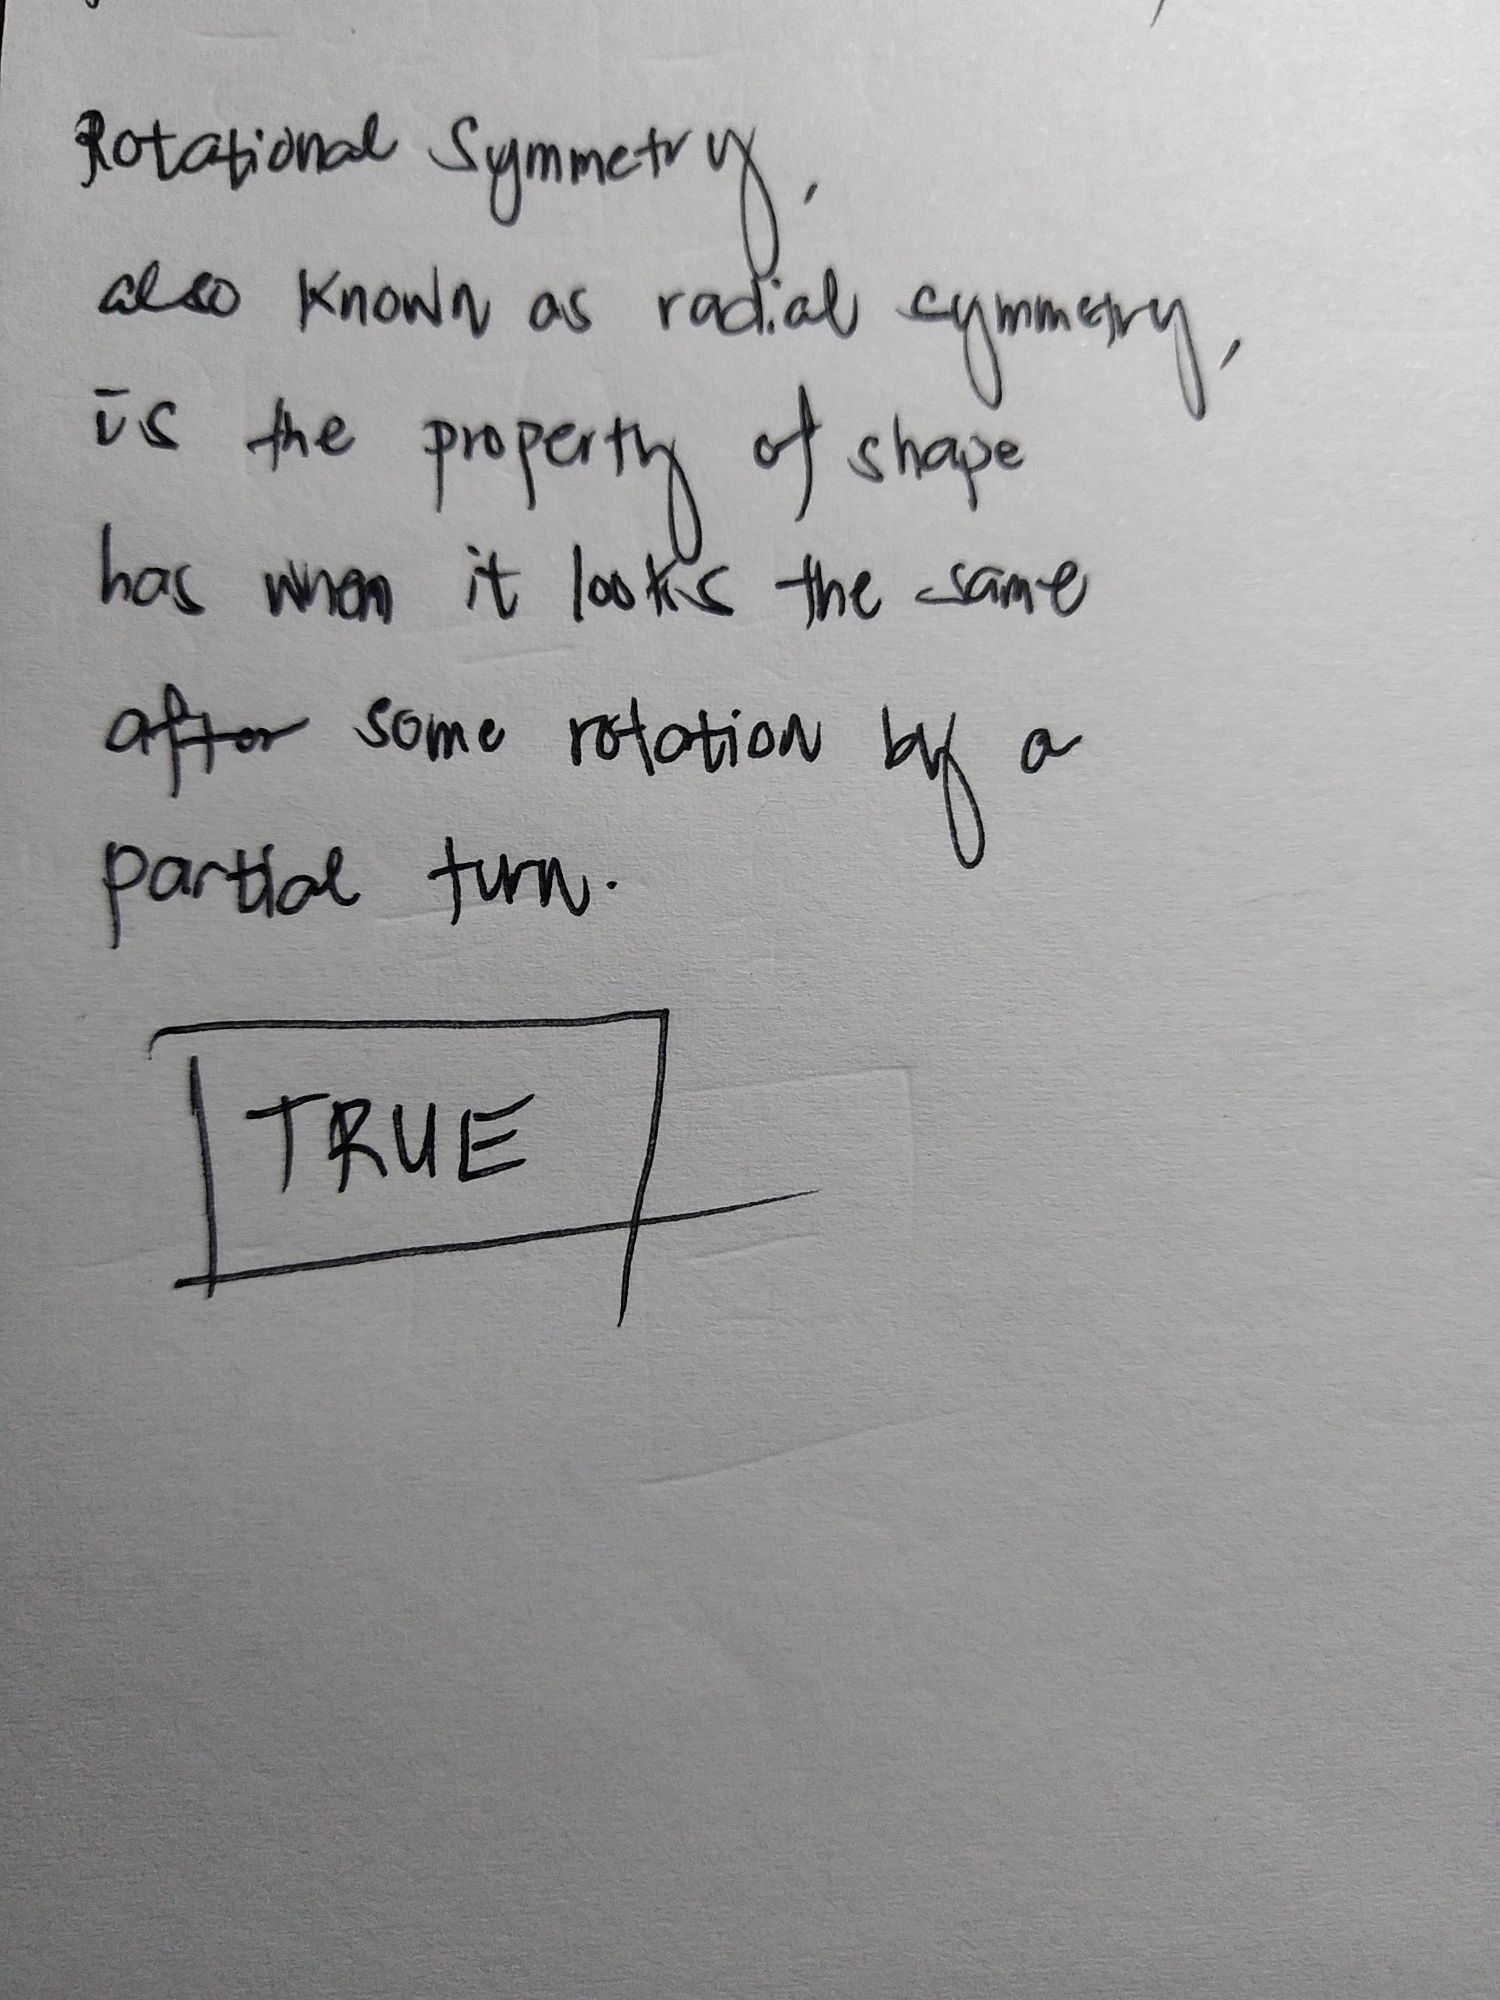 Rotational Symmetry,
also known as radial symmetry,
is the property of shape
has when it looks the same
after some rotation by a
partial turn.
TRUE